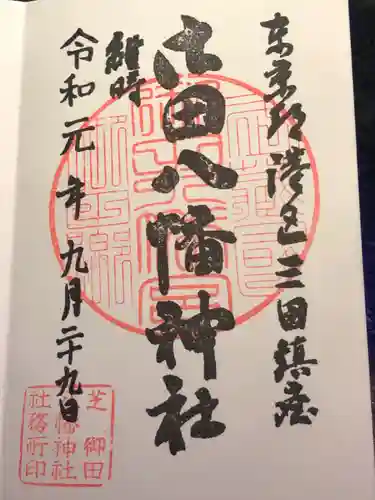 東京都港区三田鎮座
御田八幡神社
維時
令和元年九月二十九日
芝御田
八幡神社
社務所印